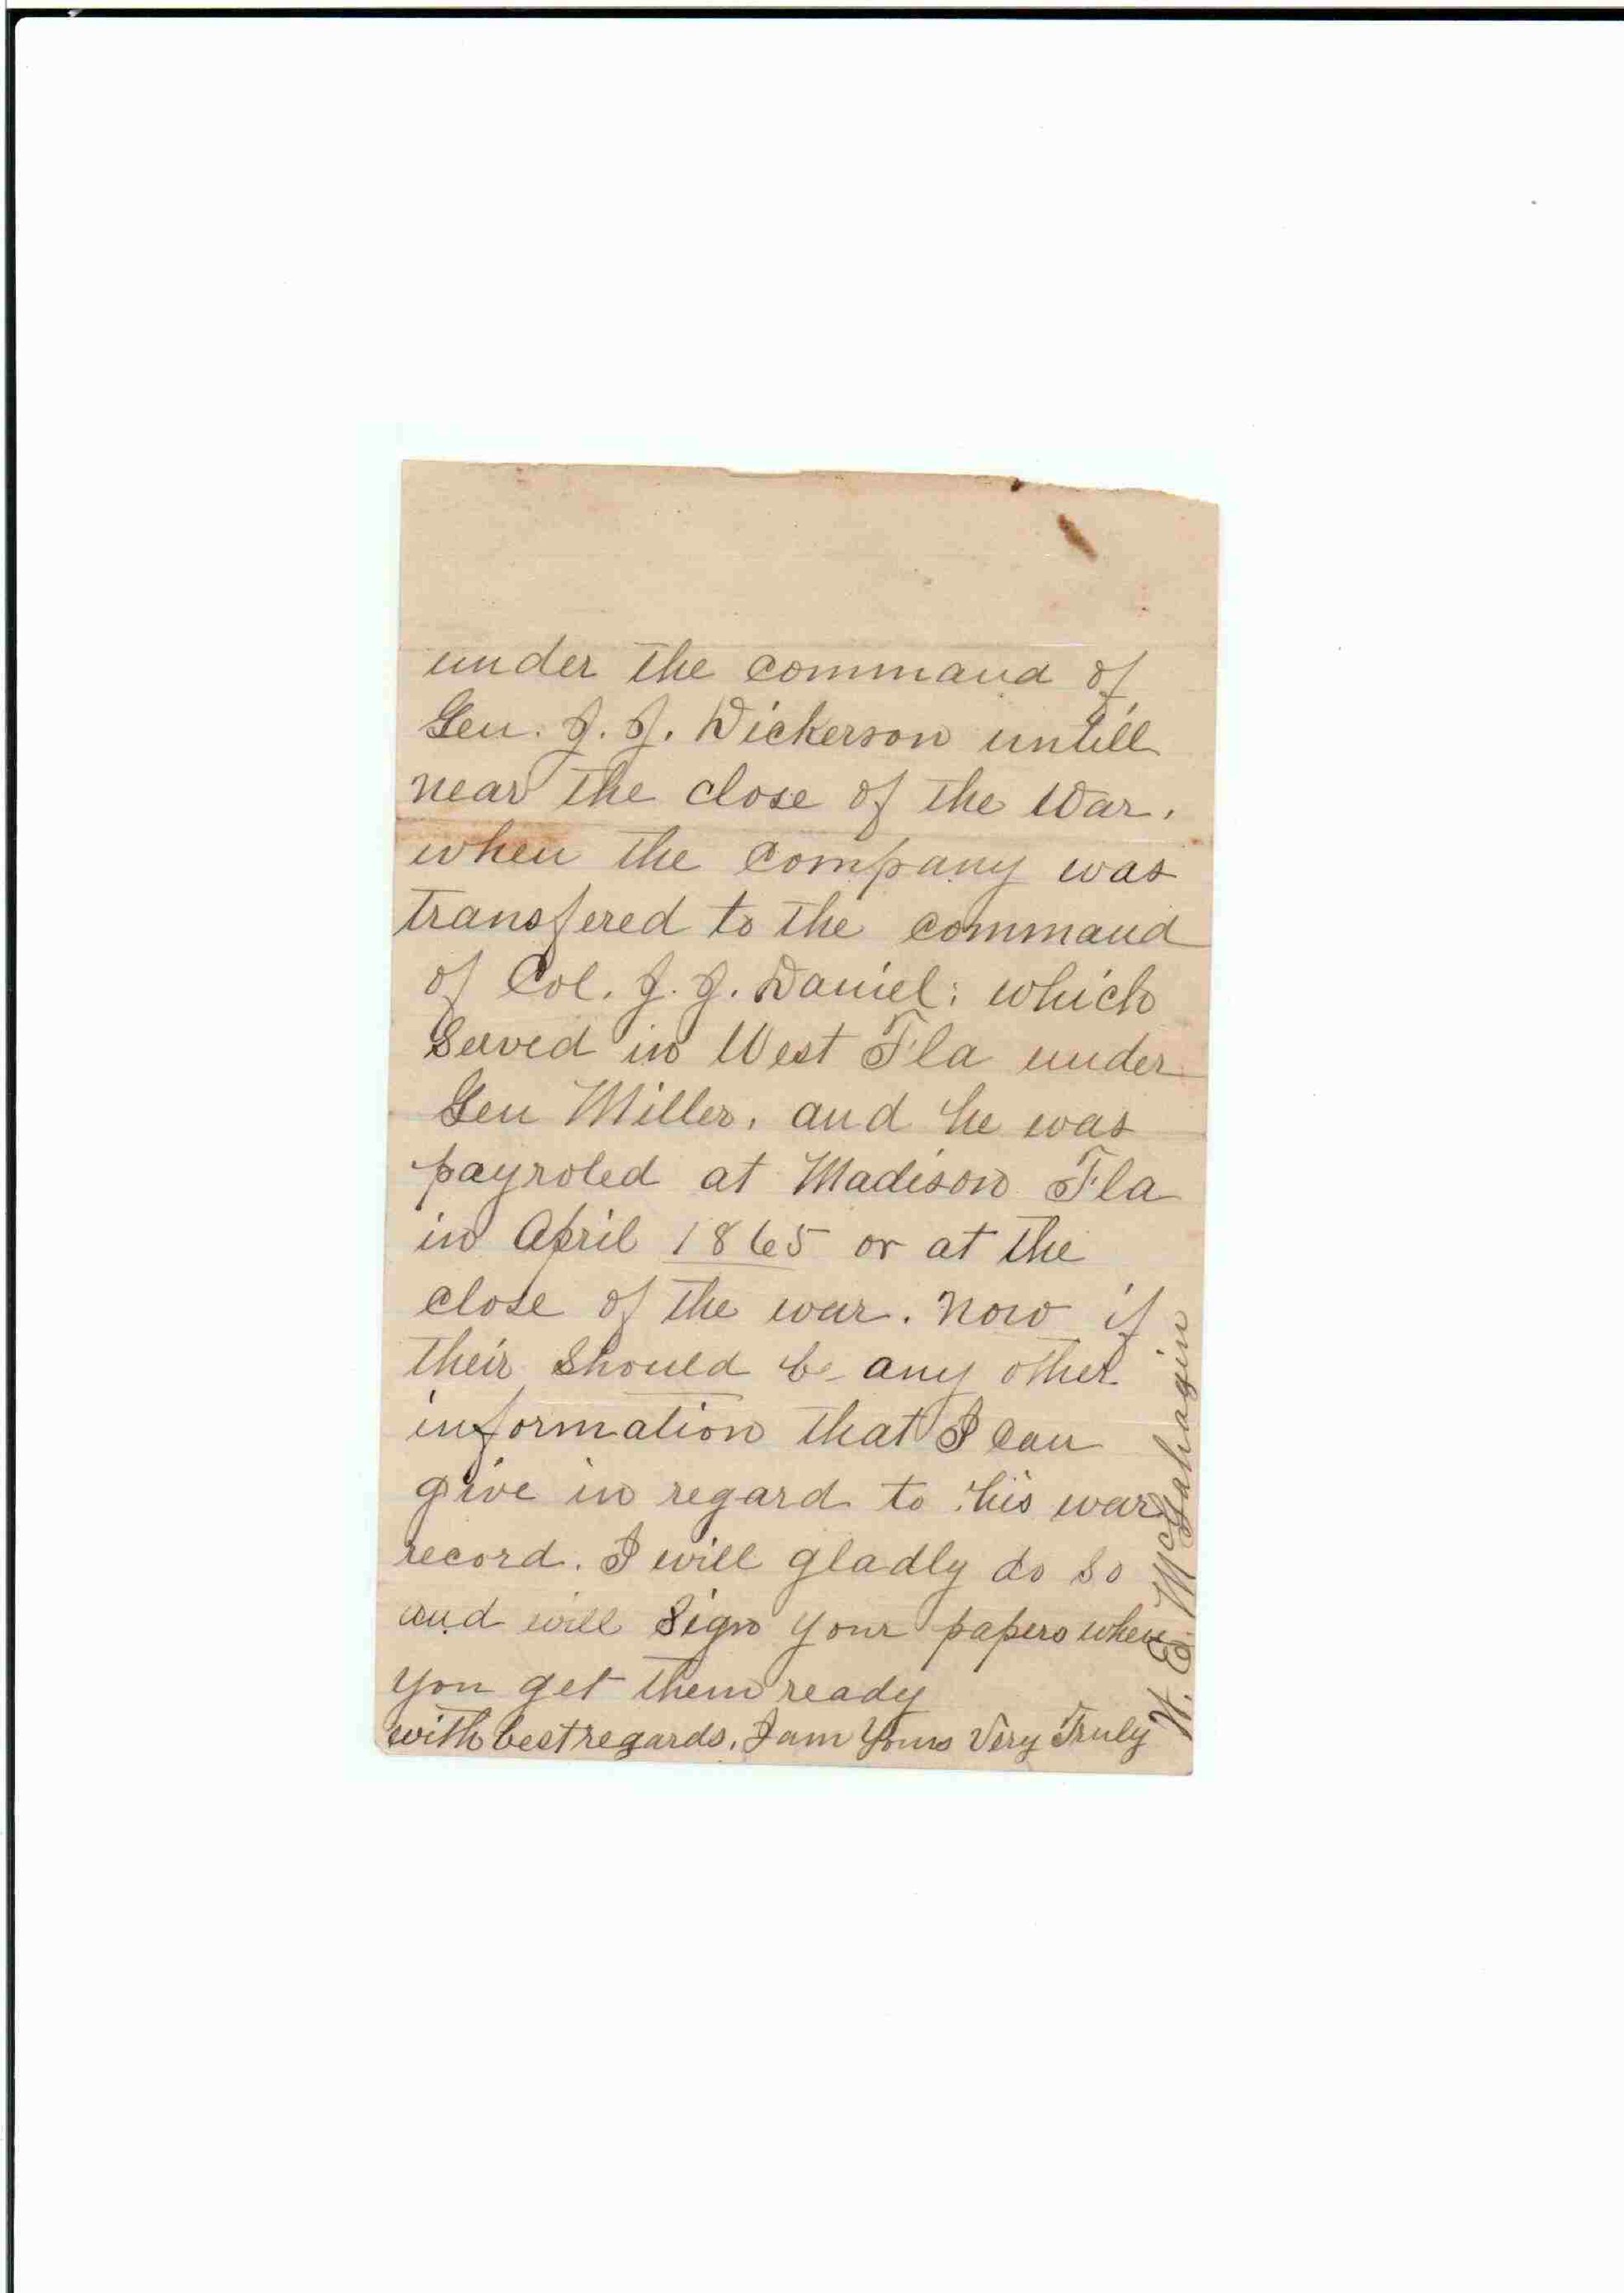 under the command of
Gen. J. J. Dickerson untill
near the close of the War.
when the company was
transfered to the command
of Col. J. J. Daniel; which
Served in West Fla under
Gen Miller, and he was
payroled at Madison Fla
in April 1865 or at the
close of the war. Now if
their should be any other
information that I can
give in regard to his war
record. I will gladly do so
and will Sign your papers when
you get them ready
with best regards. I am Yours Very Truly
W. E. McGahagin